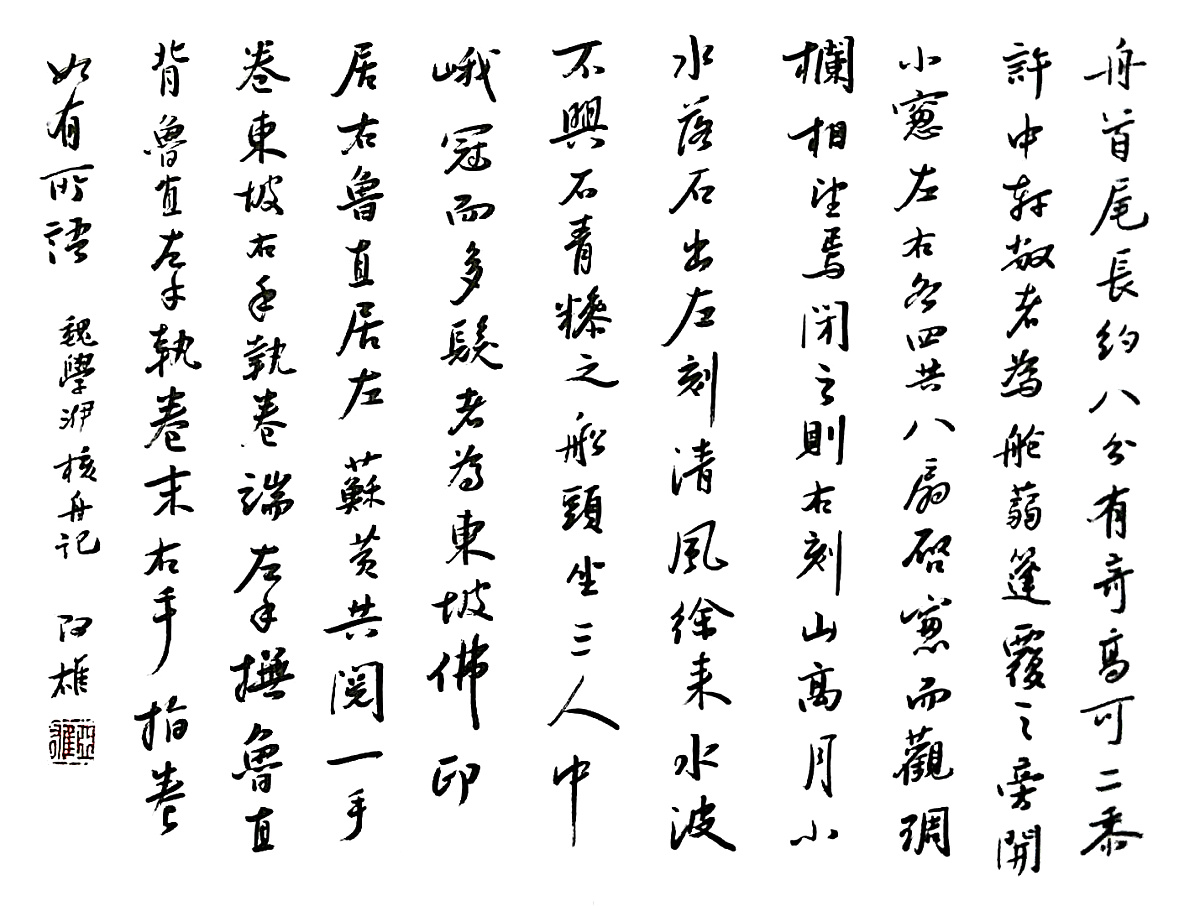 舟首尾長約八分有奇高可二黍
許中軒敞者為舱蒻篷覆之旁開
小窻左右各四共八扇啓窻而觀琱
欄相望焉閉之則右刻山高月小
水落石出左刻清風徐来水波
不興石青糝之船頭坐三人中
峨冠而多髯者為東坡佛印
居右魯直居左蘇黃共閱一手
卷東坡右手執卷端左手撫魯直
背魯直左手執卷末右手指卷
如有所語
魏學洢核舟记
雄